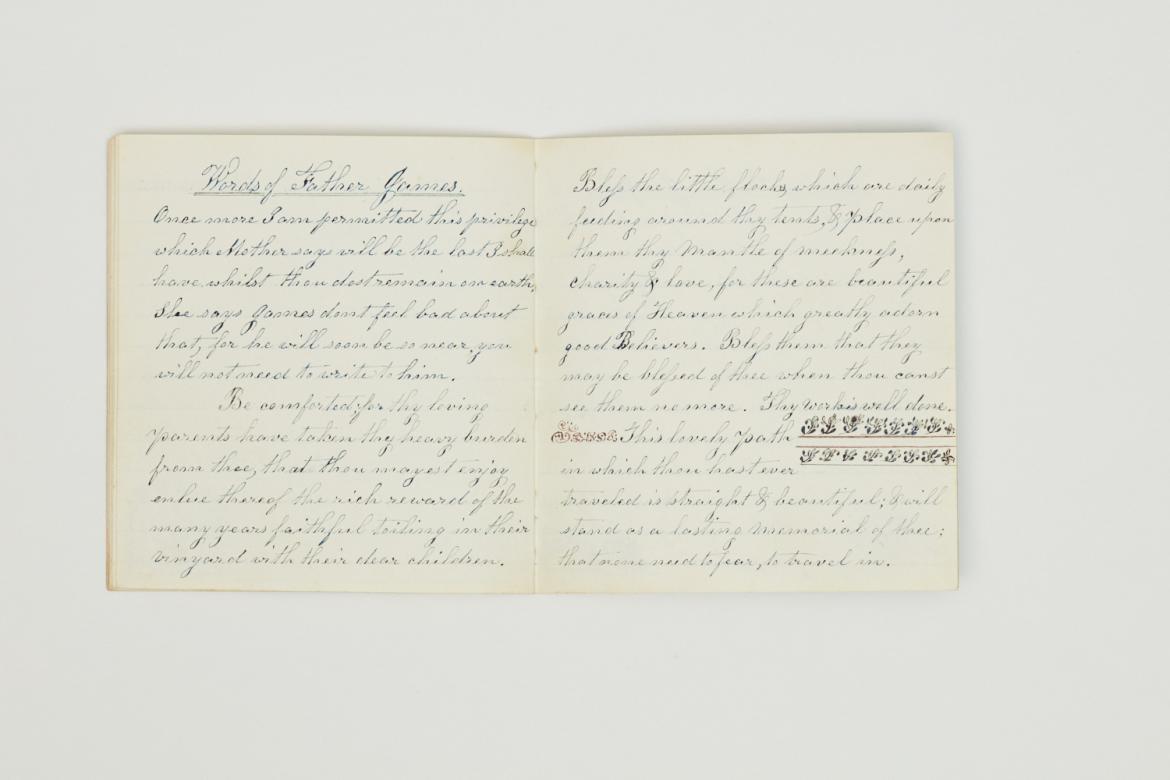 Words of Father James.
Once more I am permitted this privilege
which Mother says will be the last I shall
have, whilst thou dost remain on earth,
She says James dont feel bad about
that, for he will soon be so near you
will not need to write to him.
Be comforted; for thy loving
parents have taken thy heavy burden
from thee, that thou mayest enjoy
enlieu thereof the rich reward of the
many years faithful toiling in their
vinyard with their dear children.
Bless the little flocks, which are daily
feeding around thy tents, & place upon
them thy Mantle of meekness,
charity & love, for these are beautiful
graces of Heaven which greatly adorn
good Believers. Bless them that they
may be blessed of thee when thou canst
see them no more. Thy work is well done.
This lovely path
in which thou hast ever
traveled is straight & beautiful; & will
stand as a lasting Memorial of thee;
that none need to fear, to travel in.